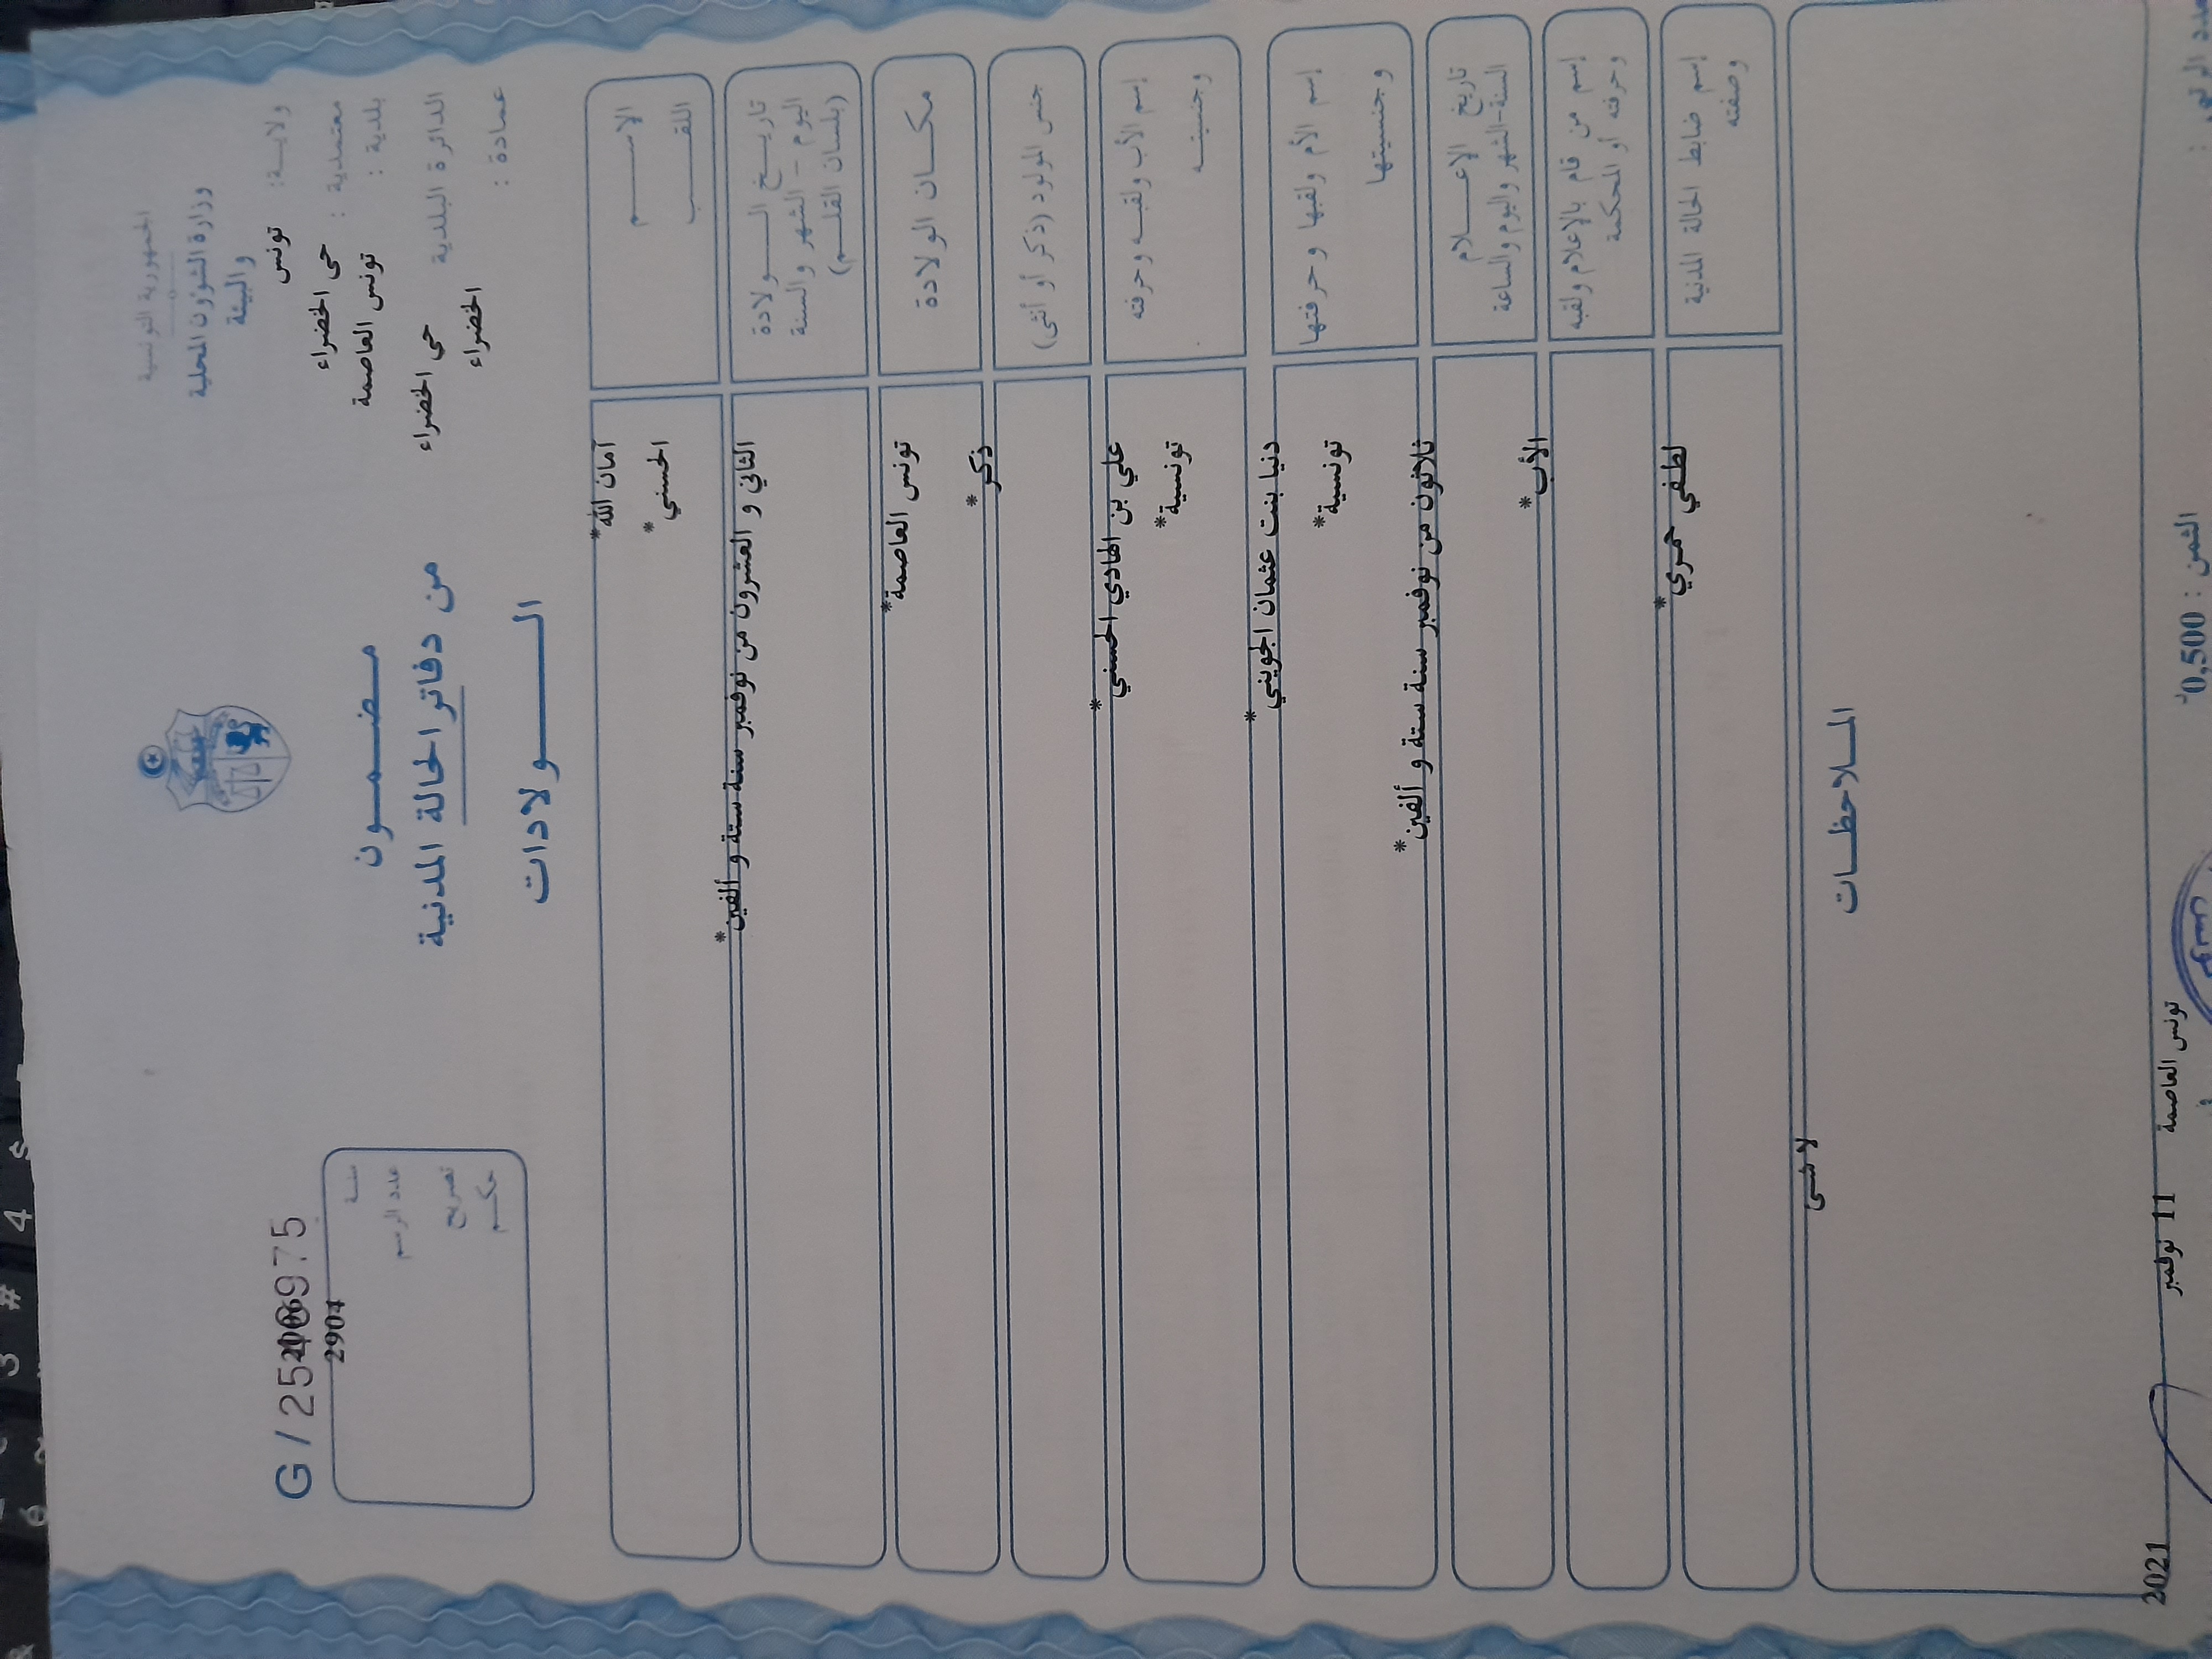 الجمهورية التونسية
وزارة الشؤون المحلية
والبيئة
ولايـة: تونس
معتمدية : حى الخضراء
بلدية : تونس العاصمة
الدائرة البلدية حي الخضراء
عمادة : الخضراء
مـضـمـون
من دفاتر الحالة المدنية
الــولادات
G / 25 975
2904
سنـة
عدد الرسم
تصريح
حكـم
الإســـم آمان الله*
اللقـــب الحسني*
تاريــخ الــولادة الثاني و العشرون من نوفمبر سنة ستة و ألفين*
اليوم - الشهر والسنة
(بلسان القلـم)
مكــان الولادة تونس العاصمة*
جنس المولود (ذكر أو أنثى) ذكر*
إسم الأب ولقبـه وحرفته علي بن الهادي الحسني*
وجنسيتـه تونسية*
إسم الأم ولقبها وحرفتها دنيا بنت عثمان الجويني*
وجنسيتها تونسية*
تاريخ الإعــلام ثلاثون من نوفمبر سنة ستة و ألفين*
السنة-الشهر واليوم والساعة
إسم من قام بالإعلام ولقبه الأب*
وحرفته أو المحكمة
إسم ضابط الحالة المدنية لطفي حمري*
وصفته
المـلاحظـات
لاشىء
تونس العاصمة 11 نوفمبر 2021
الثمن : 0,500د